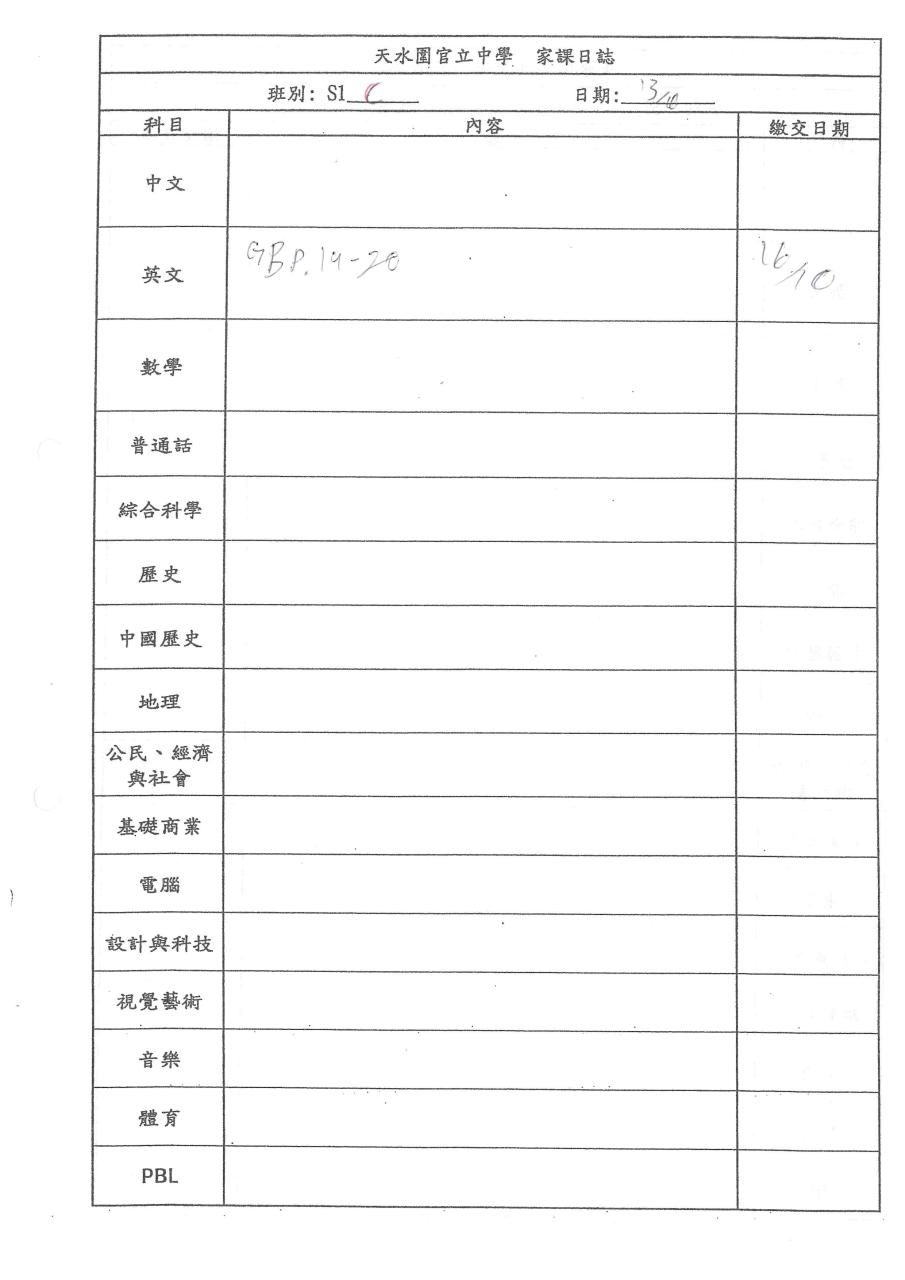 天水圍官立中學 家課日誌
班別: S1 C 日期: 13/10
科目 內容 繳交日期
中文
英文 GB P.19-20 16/10
數學
普通話
綜合科學
歷史
中國歷史
地理
公民、經濟
與社會
基礎商業
電腦
設計與科技
視覺藝術
音樂
體育
PBL